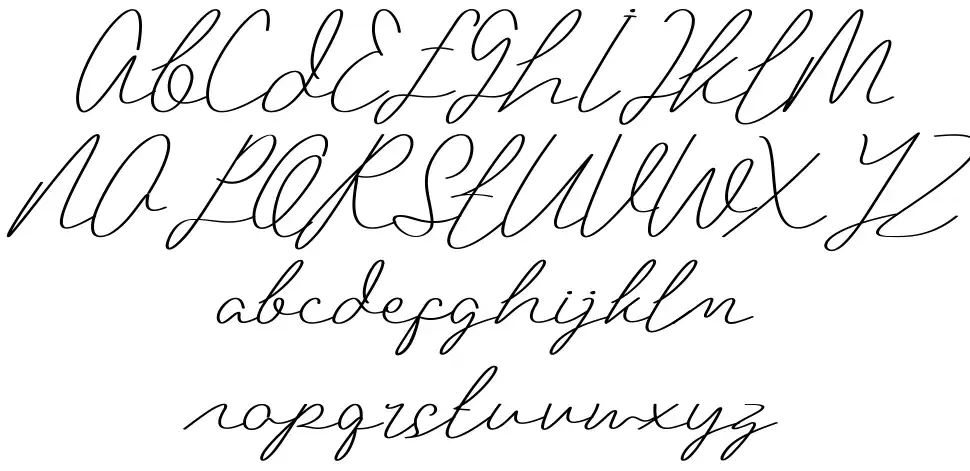 AbCdEfGhIJklM
NOPQRStUVWXYZ
abcdefghijklm
nopqrstuvwxyz